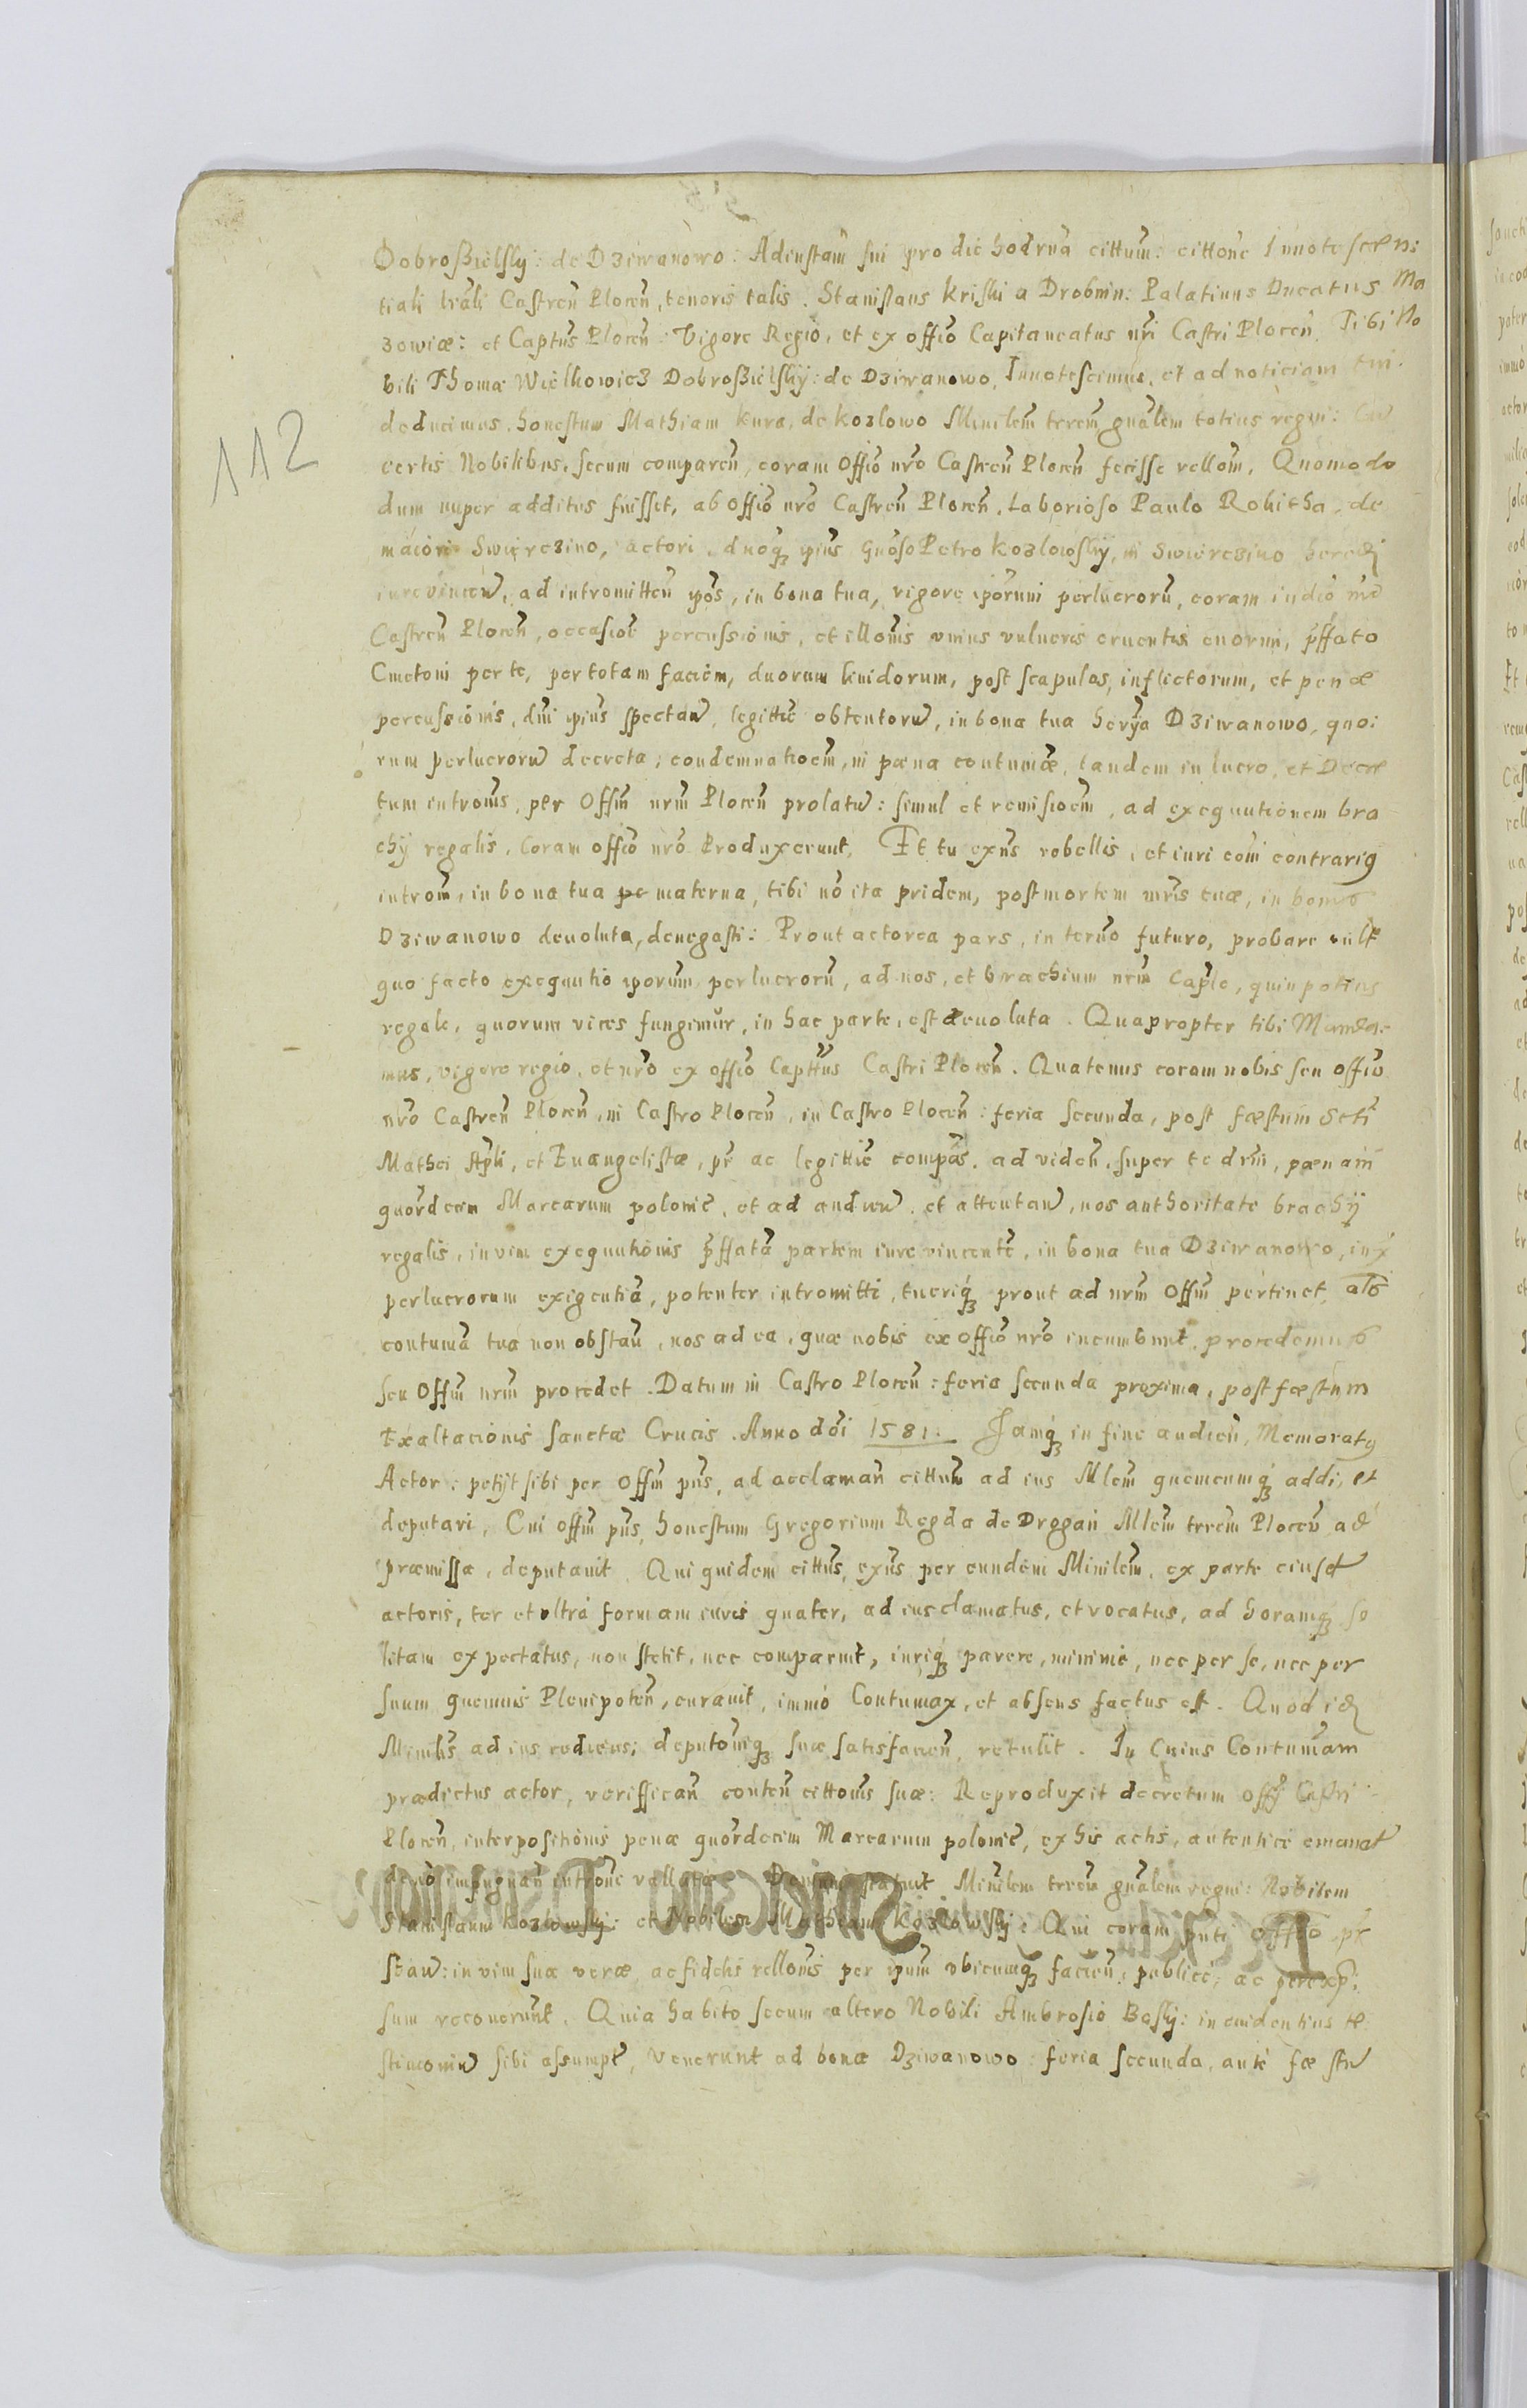 112
Dobroßielsky: de Dziwanowo: Adinstam̃ sui pro die hodrña cittum̃: cittonẽ Innotescen:
tiali lrãli Castren̄ Plocen̄, tenoris talis. Stanislaus Kriski a Drobnin: Palatinus Ducatus Ma
zowiæ: et Capt̃us Plocen̄: Vigore Regio, et ex offiõ Capitaneatus nr̃i Castri Plocen̄. Tibi No
bili Thomæ Wielkowicz Dobroßielskij: de Dziwanowo, Innotescimus, et ad noticiam tui
deducimus. honestum Mathiam Kura, de Kozlowo Minlem̃ terrem̃ gnãlem totius regni:
certis Nobilibus, secum comparen̄, coram offiõ nrõ Castren̄ Plocen̄ fecisse rellom̃, Quomodo
dum nuper additus fuisset, ab offiõ nrõ Castren̄ Plocen̄, Laborioso Paulo Rokitha, de
maiori Swięrczino, actori, dnoq̃ ipiũs Gnõso Petro Kozlowskij, in Swierczino heredi
iure vincen̄, ad intromitten̄ ipõs, in bona tua, vigore ipõrum perlucrorũ, coram iudiõ nrõ
Castren̄ Plocen̄, occasiõe percussionis, et illonis unius vulneris cruentis enormi, p̃ffato
Cmetoni per te, per totam faciem, duorum liuidorum, post scapulas, inflictorum, et penæ
percussionis, dñi ipiũs spectan̄, legittiẽ obtentorũ, in bona tua herỹa Dziwanowo, quo:
rum perlucrorũ decreta, condemnatioem̃, in pœna contumãe, tandem in lucro, et Decre
tum introm̃s, per Offm̃ nrm̃ Plocen̄ prolatũ: simul et remisioem̃, ad exequutionem bra
chij regalis, coram offiõ nrõ Produxerunt, Et tu exñs rebellis, et iuri coĩ contrarius
introm̃, in bona tua pe materna, tibi nõ ita pridem, post mortem mr̃is tuæ, in bonis
Dziwanowo deuoluta, denegasti: Prout actorea pars, in termõ futuro, probare vult
quo facto exequutio ipõrum perlucrorũ, ad nos, et brachium nrm̃ Caple, quin potius
regale, quorum vices fungimur, in hac parte, est deuoluta. Quapropter tibi Manda:
mus, vigore regio, et nrõ ex offiõ Captt̃us Castri Plocen̄. Quatenus coram nobis seu offiõ
nrõ Castren̄ Plocen̄, in Castro Plocen̄, in Castro Plocen̄: feria secunda, post fæstum Scti
Mathei Apli, et Euangelistæ, pr̃ ac legittiẽ compãs, ad viden̄, super te drm̃, pænam
quordecim Marcarum polonic̃, et ad audien̄, et attentan̄, nos authoritate brachij
regalis, in vim exequutionis p̃ffatã partem iure vincentẽ, in bona tua Dziwanowo, iux̃
perlucrorum exigentiã, potenter intromitti, tueriq̃ prout ad nrm̃ offm̃ pertinet, alõ
contumã tua non obstan̄, nos ad ea, quæ nobis ex offiõ nrõ incumbunt, procedemus
seu Offm̃ nrm̃ procedet. Datum in Castro Plocen̄: feria secunda proxima, post fæstum
Exaltacionis Sanctæ Crucis. Anno dõi 1581. Jamq̃ in fine audien̄, Memoratus
Actor: petijt sibi per Offm̃ pñs, ad acclaman̄ cittum̃ ad ius Mlem̃ quemcumq̃ addi, et
deputari, Cui offm̃ pñs, honestum Gregorium Regda de Drogan Mlem̃ trrem̃ Plocen̄ ad
præmissa, deputauit. Qui quidem citt̃us, exñs per eundem Minlem̃, ex parte eiusd̃
actoris, ter et vltra formam iuris quater, ad ius clamatus, et vocatus, ad horamq̃ so
litam expectatus, non stetit, nec comparuit, iuriq̃ parere, minimè, nec per se, nec per
suum quemuis Plenipoten̄, curauit, immò Contumax, et absens factus est. Quod id
Minlis̃, ad ius rediens, deputoniq̃ suæ satisfacien̄, retulit. In Cuius Contumãm
prædictus actor, verifficañ conten̄ cittoñis suæ: Reproduxit decretum offỹ Castri
Plocen̄, interpositionis penæ quordecim Marcarum polonic̃, ex his actis, autenticè emanat̃
de nõ impugnan̄ introm̃e vallatæ. Demum statuit Minlem terrem̃ gnãlem regni: Nobilem
Stanislaum Kozlowskij: et Nobilem Mathiam Kozlowskij: Qui coram pñti Offiõ pr̃
stan̄: in vim suæ veræ, ac fidelis rellonis per ipsum ubicumq̃ facien̄, publicè, ac per expr̃:
sum recouerunt. Quia habito secum altero Nobili Ambrosio Boskij: in euidentius te
stimoniũ sibi assumpt̃, Venerunt ad bona Dziwanowo: feria secunda, antè fæstũ